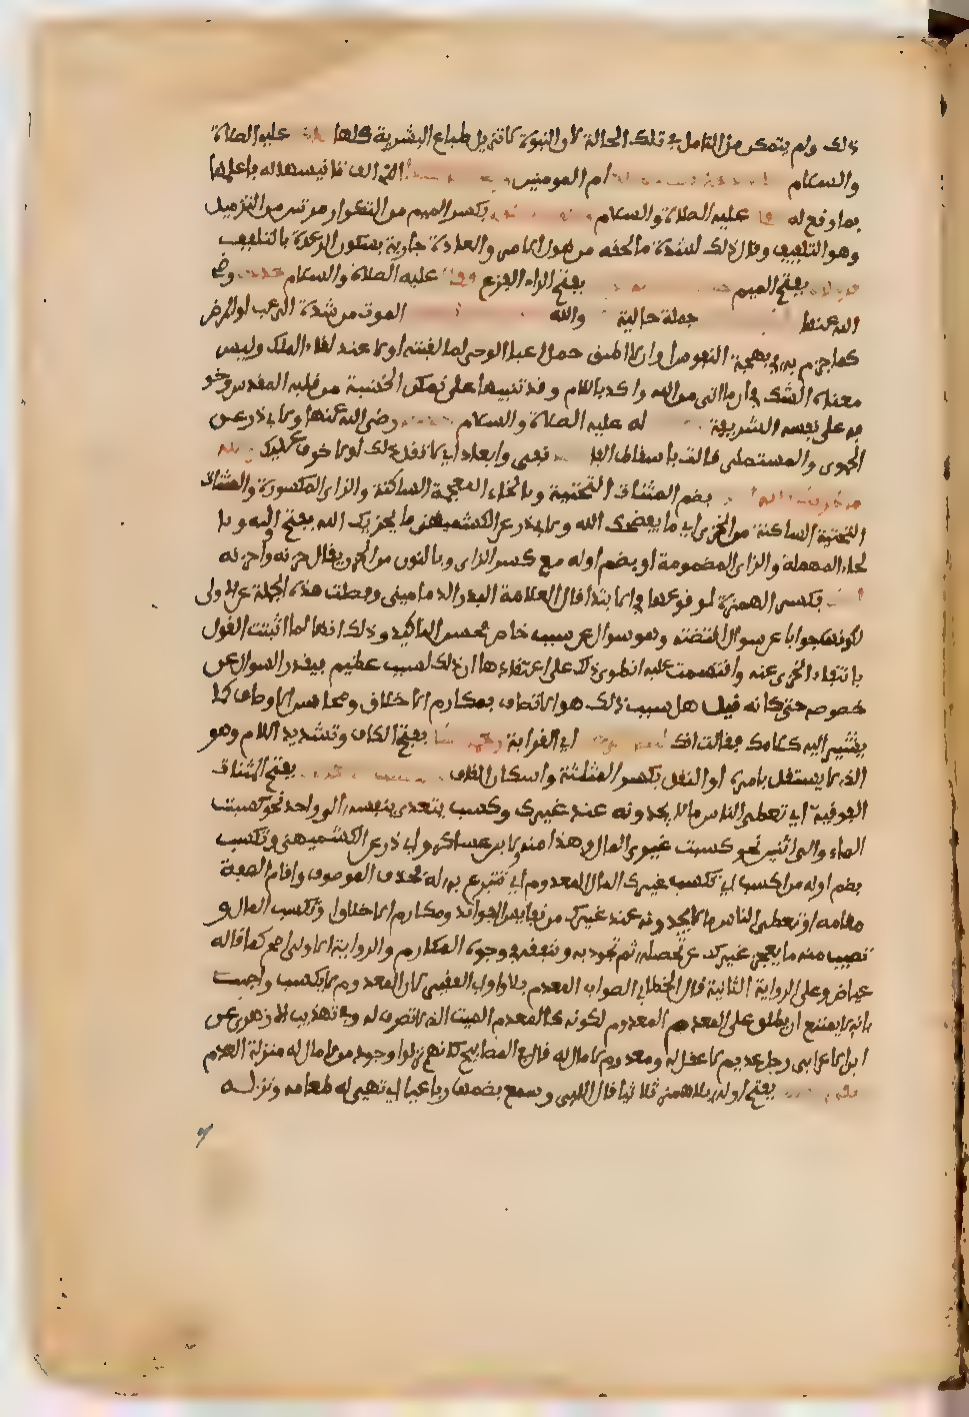 ذلك ولم يتمكن من التامل في تلك الحالة لان النبوة لا تزيل طباع البشرية كلها عليه الصلاة
والسلام ام المومنين التي الف تانيسها له باعلمها
بما وقع له عليه الصلاة والسلام بكسر الميم مع التكرار مرتين من التزميل
وهو التلفيف وقال ذلك لشدة ما لحقه من هول الامر والعادة جارية بسكون الرعدة بالتلفيف
بفتح الميم بفتح الراء الفزع عليه الصلاة والسلام
الله عنها جملة حالية والله الموت من شدة الرعب او المرض
كما جزم به في بهجة النفوس او اني لا اطيق حمل اعباء الوحي لما لقيته اولا عند لقاء الملك وليس
معناه الشك في ان ما اتى من الله واكد باللام وقد تنبيها على تمكن الخشية من قلبه المقدس وخو
فه على نفسه الشريفة له عليه الصلاة والسلام رضي الله عنها ولابي ذر عن
الحموي والمستملي قالت باسقاط الفا نفي وابعاد اي لا تقل ذلك او لا خوف عليك
بضم المثناة التحتية وبالخاء المعجمة الساكنة والزاي المكسورة والمثناة
التحتية الساكنة من الخزي اي ما يفضحك الله ولابي ذر عن الكشميهني ما يحزنك الله بفتح اوله وبا
لحاء المهملة والزاي المضمومة او بضم اوله مع كسر الزاي وبالنون من الحزن يقال حزنه واحزنه
بكسر الهمزة لوقوعها في الابتدا قال العلامة البدر الدماميني وفصلت هذه الجملة عن الاولى
لكونها جوابا عن سوال اقتضته وهو سوال عن سبب خاص فحسن التاكيد وذلك انها لما اثبتت القول
بانتفاء الخزي عنه واقسمت عليه انطوى ذلك على اعتقادها ان ذلك لسبب عظيم فيقدر السوال عن
خصوصه حتى كانه قيل هل سبب ذلك هو الاتصاف بمكارم الاخلاق ومحاسن الاوصاف كما
يشير اليه كلامك فقالت انك اي القرابة بفتح الكاف وتشديد اللام وهو
الذي لا يستقل بامره او الثقل بكسر المثلثة واسكان القاف بفتح المثناة
الفوقية اي تعطي الناس ما لا يجدونه عند غيرك وكسب يتعدى بنفسه الى واحد نحو كسبت
المال والى اثنين نحو كسبت غيري المال وهذا منه ولابن عساكر وابي ذر عن الكشميهني وتكسب
بضم اوله من اكسب اي تكسب غيرك المال المعدوم اي تتبرع به له فحذف الموصوف واقام الصفة
مقامه او تعطي الناس ما لا يجدونه عند غيرك من نفايس الفوائد ومكارم الاخلاق او تكسب المال و
تصيب منه ما يعجز غيرك عن تحصيله ثم تجود به وتنفقه في وجوه المكارم والرواية الاولى اصح كما قاله
عياض وعلى الرواية الثانية قال الخطابي الصواب المعدم بلا واو اي الفقير لان المعدوم لا يكسب واجيب
بانه لا يمتنع ان يطلق على المعدم المعدوم لكونه كالمعدم الميت الذي لا تصرف له وفي تهذيب الازهري عن
ابن الاعرابي رجل عديم لا عقل له ومعدوم لا مال له قال في المصابيح كانهم نزلوا وجود من لا مال له منزلة العدم
بفتح اوله بلا همز ثلاثيا قال الابي وسمع بضمها رباعيا اي تهيئ له طعامه ونزله